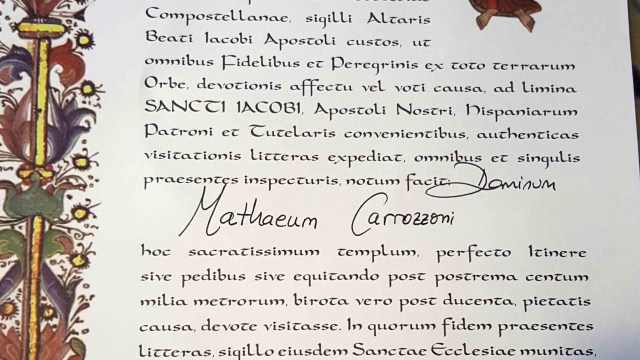 Compostellanae, sigilli Altaris
Beati Iacobi Apostoli custos, ut
omnibus Fidelibus et Peregrinis ex toto terrarum
Orbe, devotionis affectu vel voti causa, ad limina
SANCTI IACOBI, Apostoli Nostri, Hispaniarum
Patroni et Tutelaris convenientibus, authenticas
visitationis litteras expediat, omnibus et singulis
praesentes inspecturis, notum facit: Dominum
Mathaeum Carrozzoni
hoc sacratissimum templum, perfecto Itinere
sive pedibus sive equitando post postrema centum
milia metrorum, birota vero post ducenta, pietatis
causa, devote visitasse. In quorum fidem praesentes
litteras, sigillo eiusdem Sanctae Ecclesiae munitas,